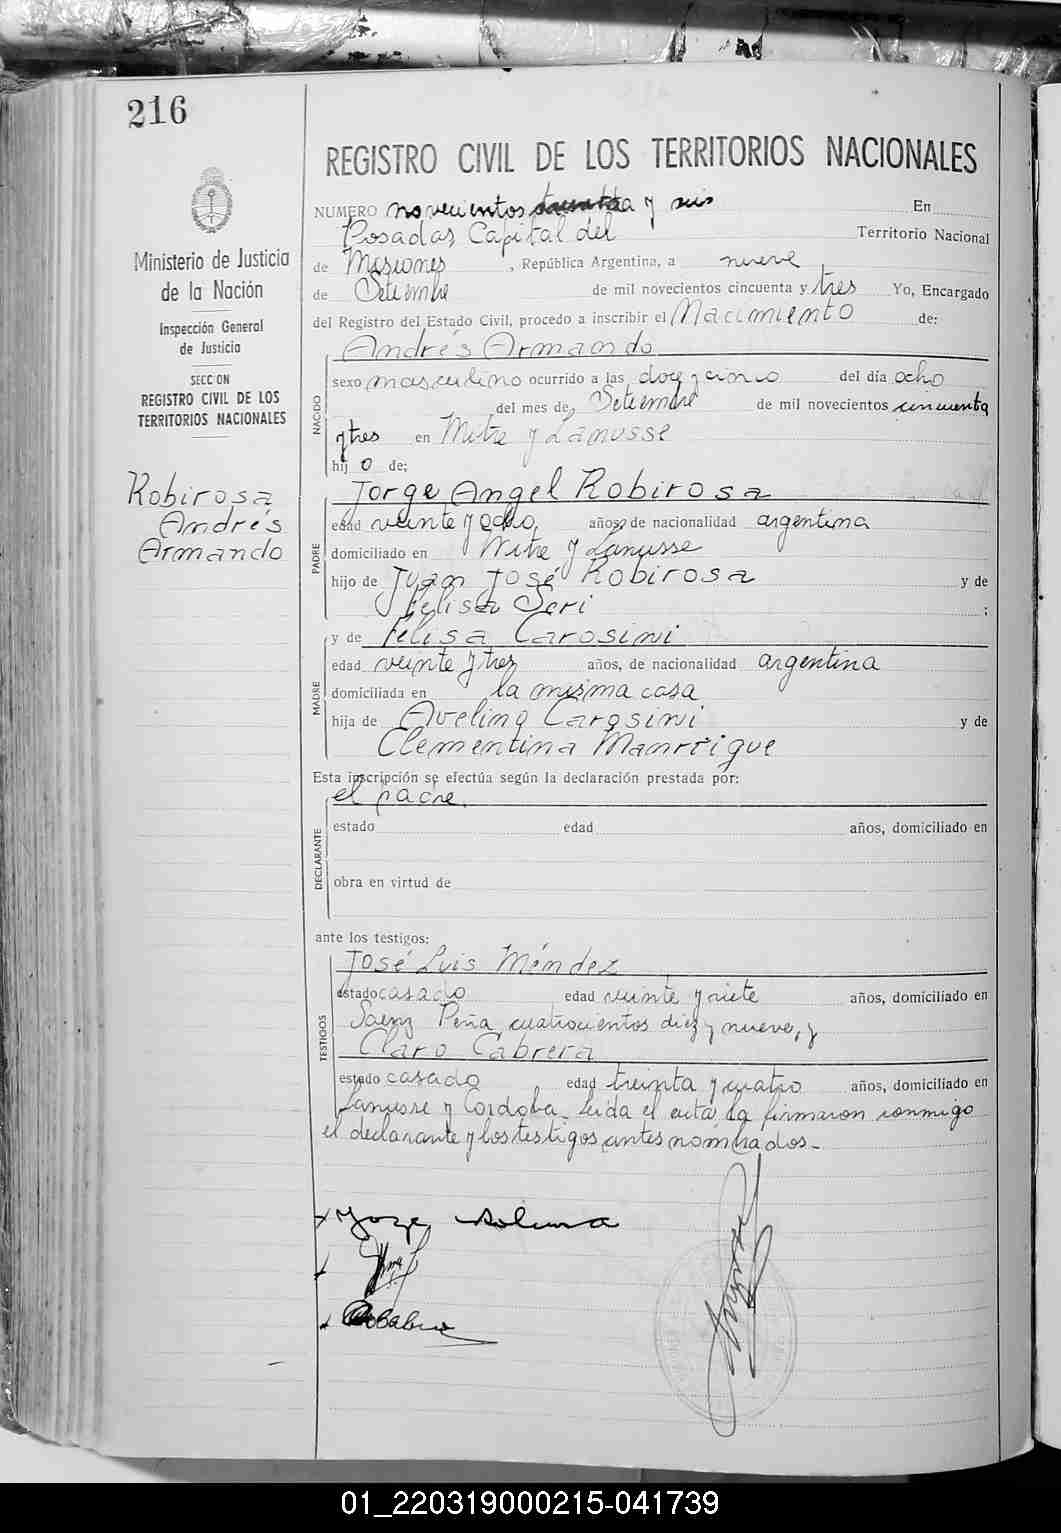 216
REGISTRO CIVIL DE LOS TERRITORIOS NACIONALES
Ministerio de Justicia
de la Nación
Inspección General
de Justicia
SECCION
REGISTRO CIVIL DE LOS
TERRITORIOS NACIONALES
Robirosa
Andrés
Armando
NUMERO novecientos y seis En
Posadas Capital del Territorio Nacional
de Misiones, República Argentina, a nueve
de Setiembre de mil novecientos cincuenta y tres Yo, Encargado
del Registro del Estado Civil, procedo a inscribir el Nacimiento de:
NACIDO
Andrés Armando
sexo masculino ocurrido a las doce y cinco del día ocho
del mes de Setiembre de mil novecientos cincuenta
y tres en Mitre y Lanusse
hijo de;
PADRE
Jorge Angel Robirosa
edad veinte y ocho años, de nacionalidad argentina
domiciliado en Mitre y Lanusse
hijo de Juan José Robirosa y de
Felisa Seri ;
MADRE
y de Felisa Carosini
edad veinte y tres años, de nacionalidad argentina
domiciliada en la misma casa
hija de Avelino Carosini y de
Clementina Manrrique
Esta inscripción se efectúa según la declaración prestada por:
DECLARANTE
el padre.
estado edad años, domiciliado en
obra en virtud de
ante los testigos:
TESTIGOS
José Luis Méndez
estado casado edad veinte y siete años, domiciliado en
Saenz Peña cuatrocientos diez y nueve, y
Claro Cabrera
estado casado edad treinta y cuatro años, domiciliado en
Lanusse y Cordoba. Leida el acta la firmaron conmigo
el declarante y los testigos antes nombrados.-
01_220319000215-041739